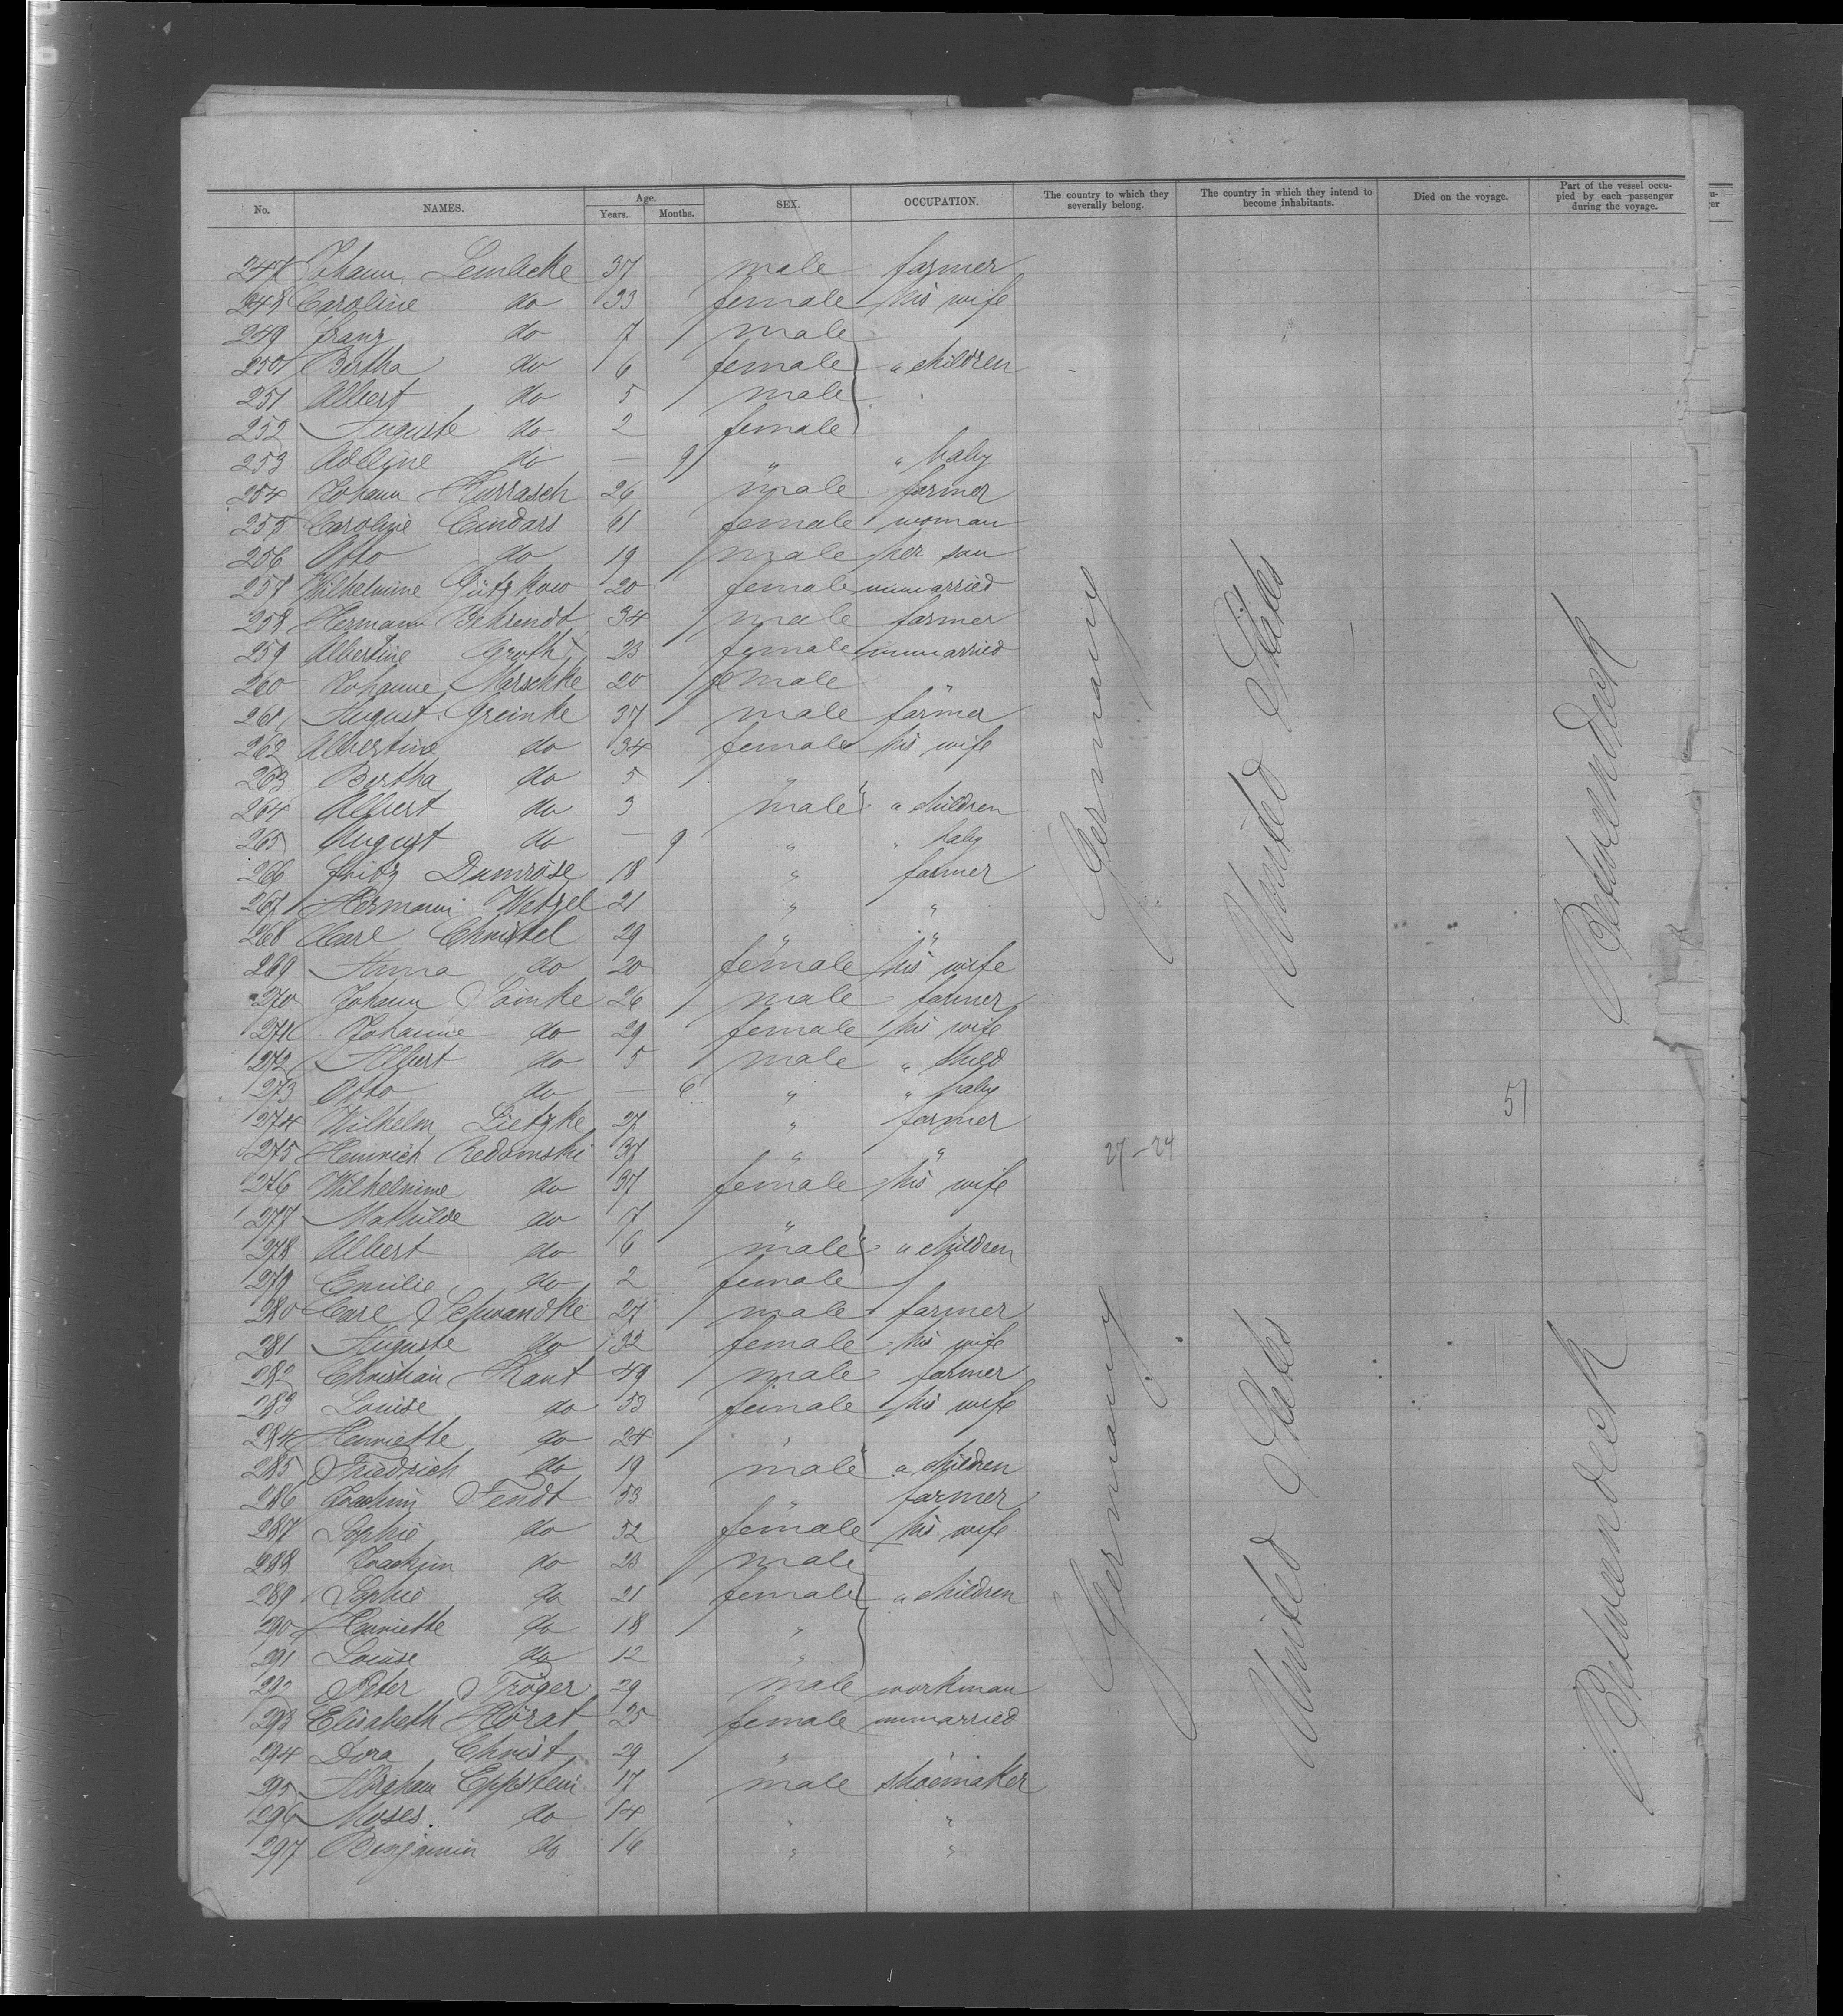 No. NAMES. Age. Years. Months. SEX. OCCUPATION. The country to which they severally belong. The country in which they intend to become inhabitants. Died on the voyage. Part of the vessel occupied by each passenger during the voyage.
247 Johann Lembcke 37 male farmer
248 Caroline do 33 female his wife
249 Franz do 7 male
250 Bertha do 6 female " children
251 Albert do 5 male
252 Auguste do 2 female
253 Adeline do — 9 " " baby
254 Johann Kurrasch 26 male farmer
255 Caroline Cindars 61 female woman
256 Otto do 19 male her son
257 Wilhelmine Gützkow 20 female unmarried
258 Hermann Behrendt 34 male farmer
259 Albertine Groth 23 female unmarried
260 Johanne Marschke 20 female "
261 August Greinke 37 male farmer
262 Albertine do 34 female his wife
263 Bertha do 5 "
264 Albert do 3 male " children
265 August do — 9 " " baby
266 Fritz Dumröse 18 " farmer
267 Hermann Wetzel 21 " "
268 Carl Christel 29 " "
269 Anna do 20 female his wife
270 Johann Joinke 26 male farmer
271 Johanne do 29 female his wife
272 Albert do 5 male " child
273 Otto do — 6 " " baby
274 Wilhelm Lietzke 27 " farmer
275 Heinrich Redomski 37 " "
276 Wilhelmine do 37 female his wife
277 Mathilde do 7 "
278 Albert do 6 male " children
279 Emilie do 2 female
280 Carl Schwandke 27 male farmer
281 Auguste do 32 female his wife
282 Christian Kant 49 male farmer
283 Louise do 53 female his wife
284 Henriette do 24 "
285 Friedrich do 19 male " children
286 Joachim Fendt 53 " farmer
287 Sophie do 52 female his wife
288 Joachim do 23 male
289 Sophie do 21 female " children
290 Henriette do 18 "
291 Louise do 12 "
292 Peter Tröger 29 male workman
293 Elisabeth Hörat 25 female unmarried
294 Dora Christ 29 " "
295 Abraham Eppstein 17 male shoemaker
296 Moses do 14 " "
297 Benjamin do 16 " "
Germany
United States
Betweendeck
27-24
51
Germany
United States
Betweendeck